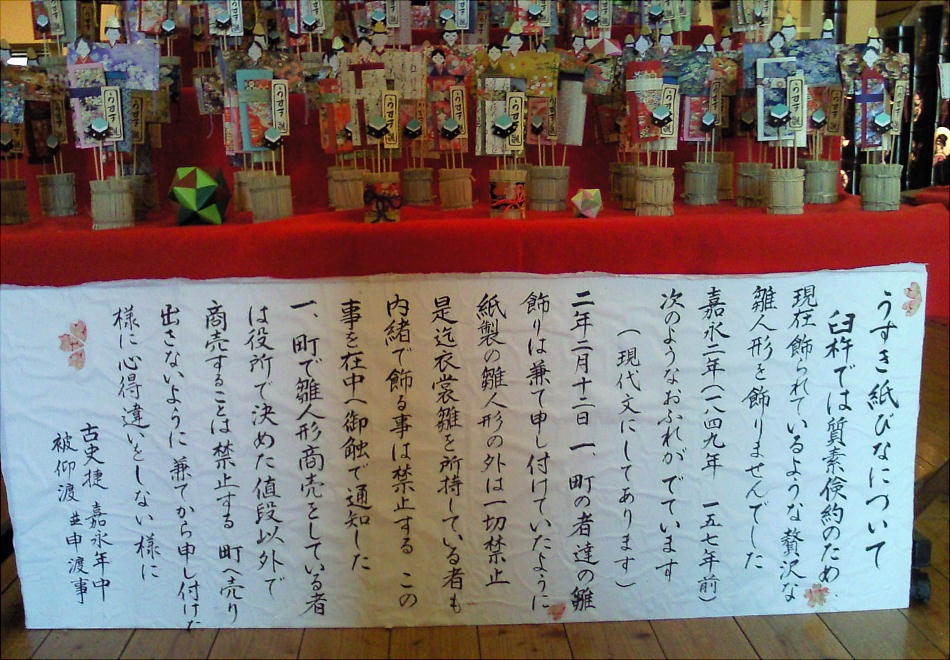 うすき紙びなについて
臼杵では質素倹約のため
現在飾られているような贅沢な
雛人形を飾りませんでした
嘉永二年(一八四九年 一五七年前)
次のようなおふれがでています
(現代文にしてあります)
二年二月十二日 一、町の者達の雛
飾りは兼て申し付けていたように
紙製の雛人形の外は一切禁止
是迄衣裳雛を所持している者も
内緒で飾る事は禁止する この
事を在中へ御触で通知した
一、町で雛人形商売をしている者
は役所で決めた値段以外で
商売することは禁止する 町へ売り
出さないように 兼てから申し付けた
様に心得違いをしない様に
古史捷 嘉永年中
被仰渡 並申渡事